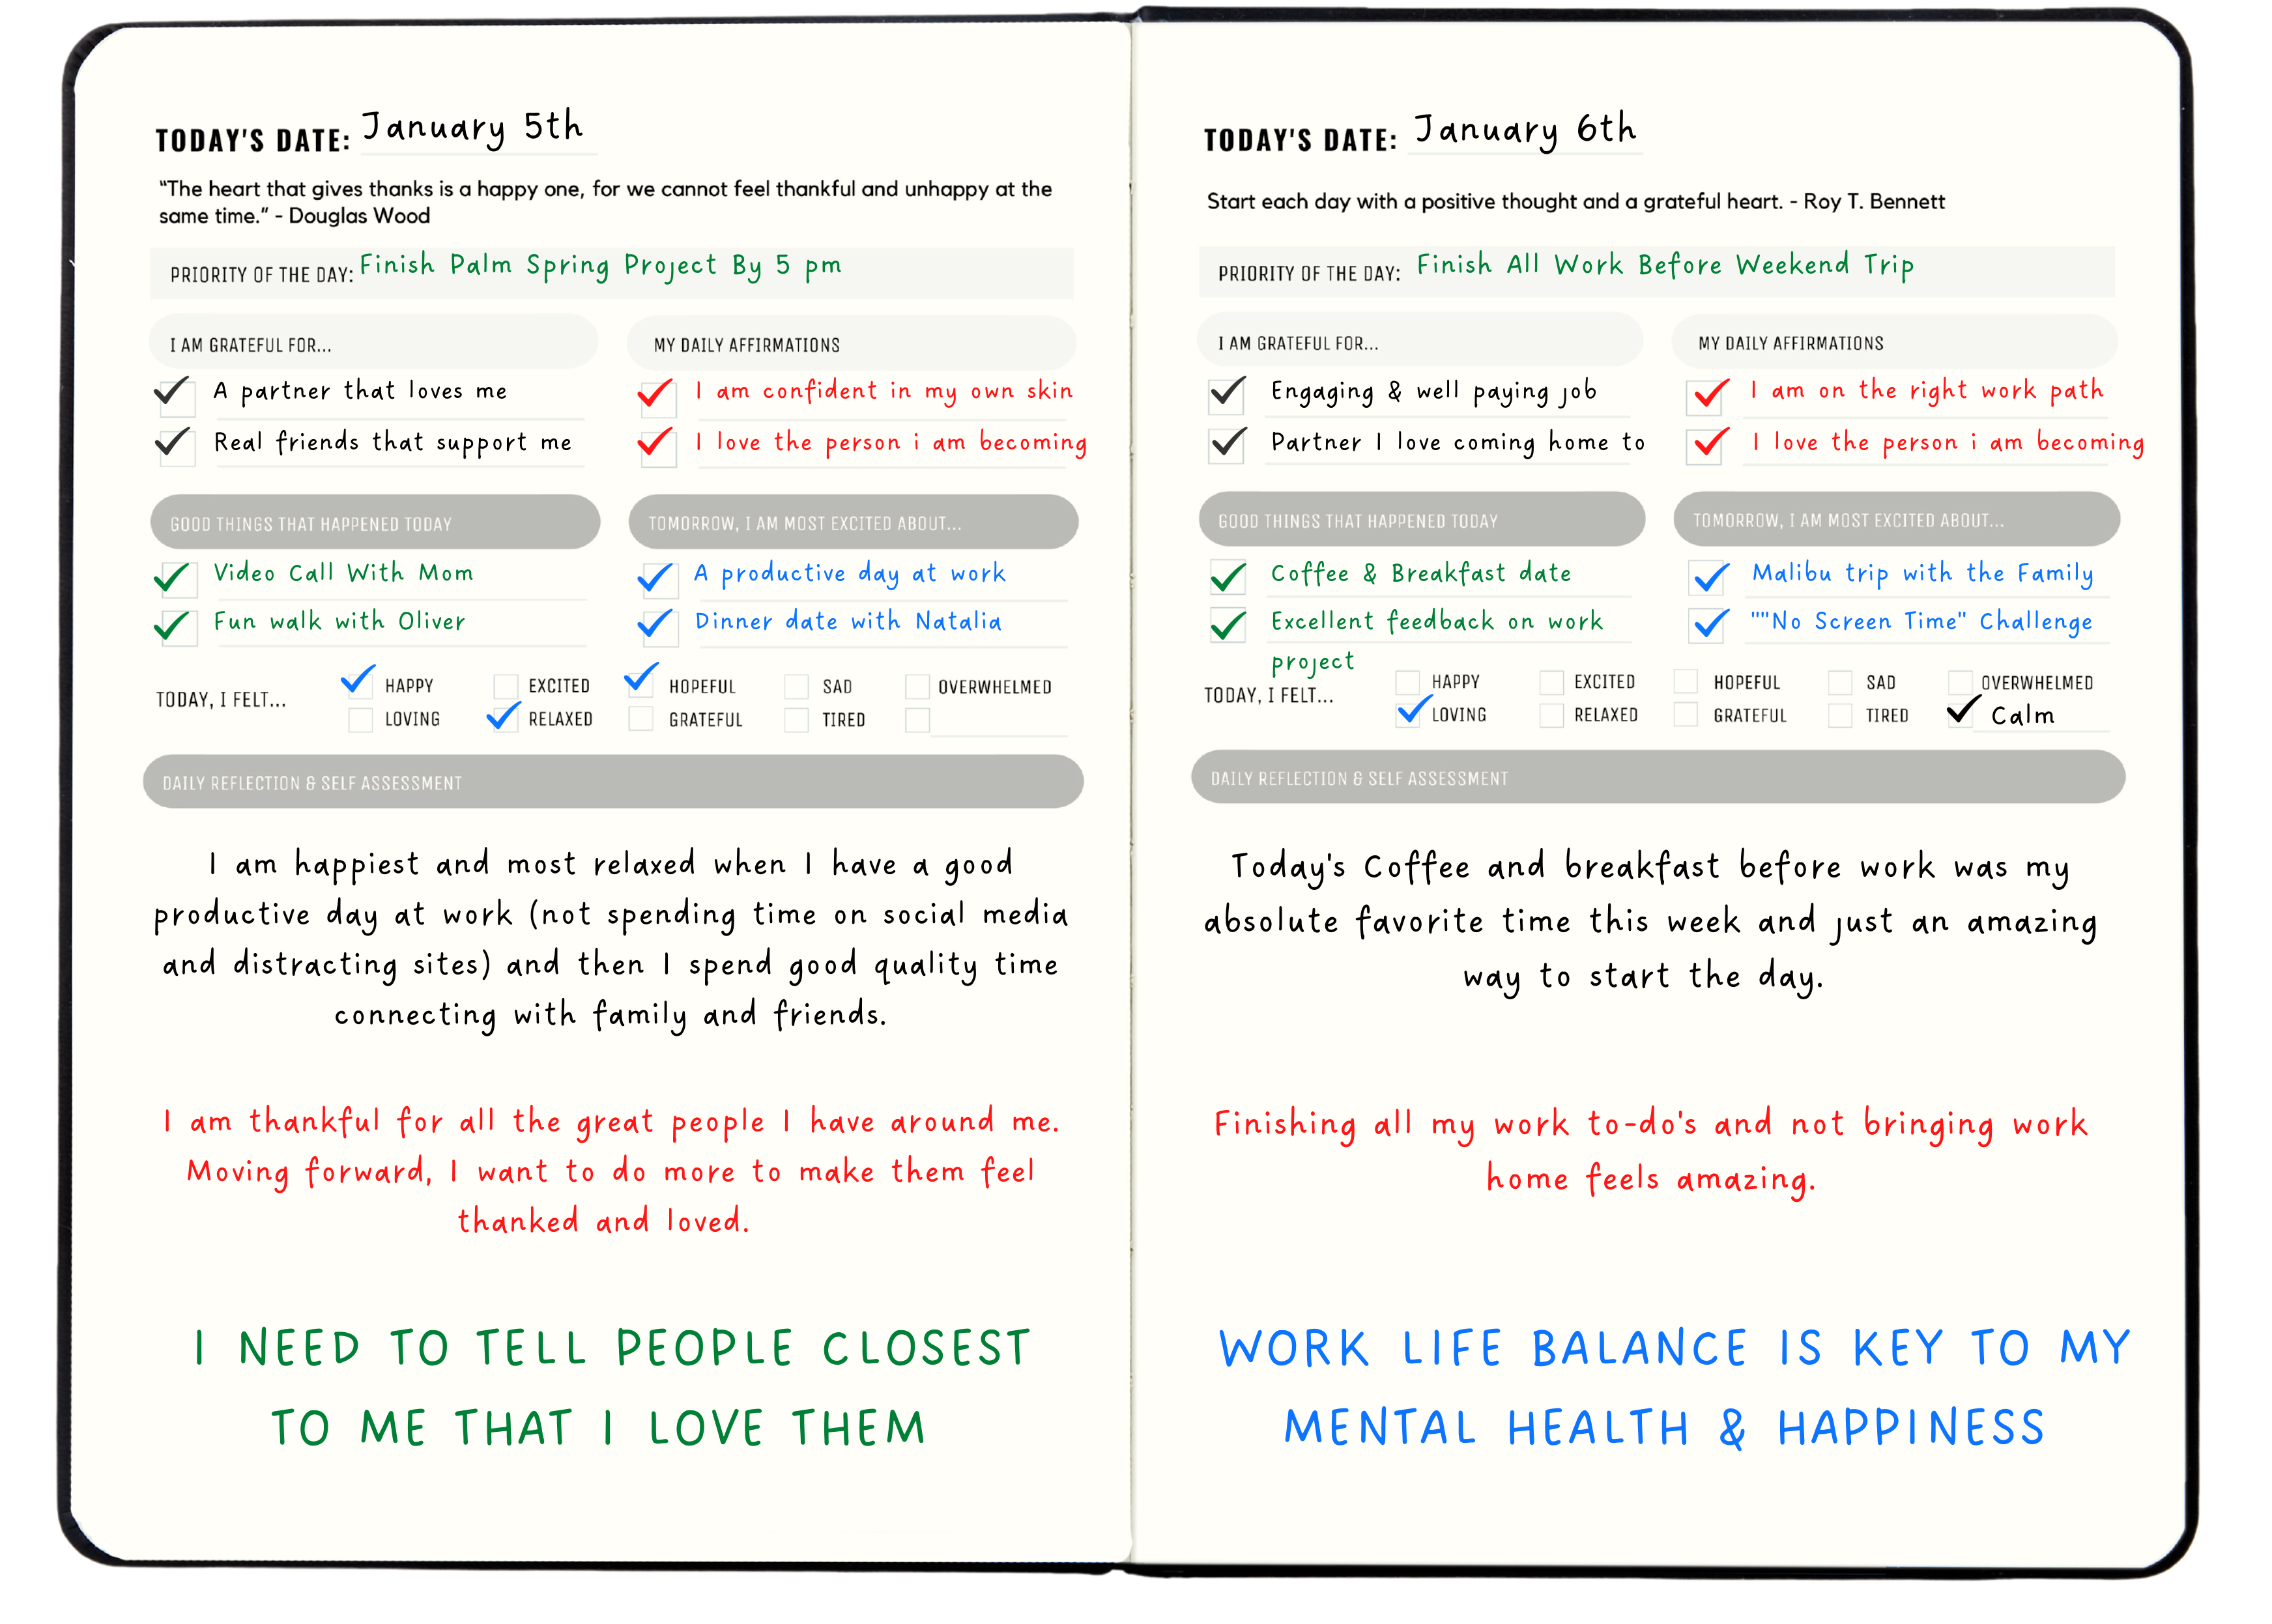 TODAY'S DATE: January 5th
"The heart that gives thanks is a happy one, for we cannot feel thankful and unhappy at the
same time." - Douglas Wood
PRIORITY OF THE DAY: Finish Palm Spring Project By 5 pm
I AM GRATEFUL FOR...
A partner that loves me
Real friends that support me
MY DAILY AFFIRMATIONS
I am confident in my own skin
I love the person i am becoming
GOOD THINGS THAT HAPPENED TODAY
Video Call With Mom
Fun walk with Oliver
TOMORROW, I AM MOST EXCITED ABOUT...
A productive day at work
Dinner date with Natalia
TODAY, I FELT...
HAPPY EXCITED HOPEFUL SAD OVERWHELMED
LOVING RELAXED GRATEFUL TIRED
DAILY REFLECTION & SELF ASSESSMENT
I am happiest and most relaxed when I have a good
productive day at work (not spending time on social media
and distracting sites) and then I spend good quality time
connecting with family and friends.
I am thankful for all the great people I have around me.
Moving forward, I want to do more to make them feel
thanked and loved.
I NEED TO TELL PEOPLE CLOSEST
TO ME THAT I LOVE THEM
TODAY'S DATE: January 6th
Start each day with a positive thought and a grateful heart. - Roy T. Bennett
PRIORITY OF THE DAY: Finish All Work Before Weekend Trip
I AM GRATEFUL FOR...
Engaging & well paying job
Partner I love coming home to
MY DAILY AFFIRMATIONS
I am on the right work path
I love the person i am becoming
GOOD THINGS THAT HAPPENED TODAY
Coffee & Breakfast date
Excellent feedback on work
project
TOMORROW, I AM MOST EXCITED ABOUT...
Malibu trip with the Family
""No Screen Time" Challenge
TODAY, I FELT...
HAPPY EXCITED HOPEFUL SAD OVERWHELMED
LOVING RELAXED GRATEFUL TIRED Calm
DAILY REFLECTION & SELF ASSESSMENT
Today's Coffee and breakfast before work was my
absolute favorite time this week and just an amazing
way to start the day.
Finishing all my work to-do's and not bringing work
home feels amazing.
WORK LIFE BALANCE IS KEY TO MY
MENTAL HEALTH & HAPPINESS